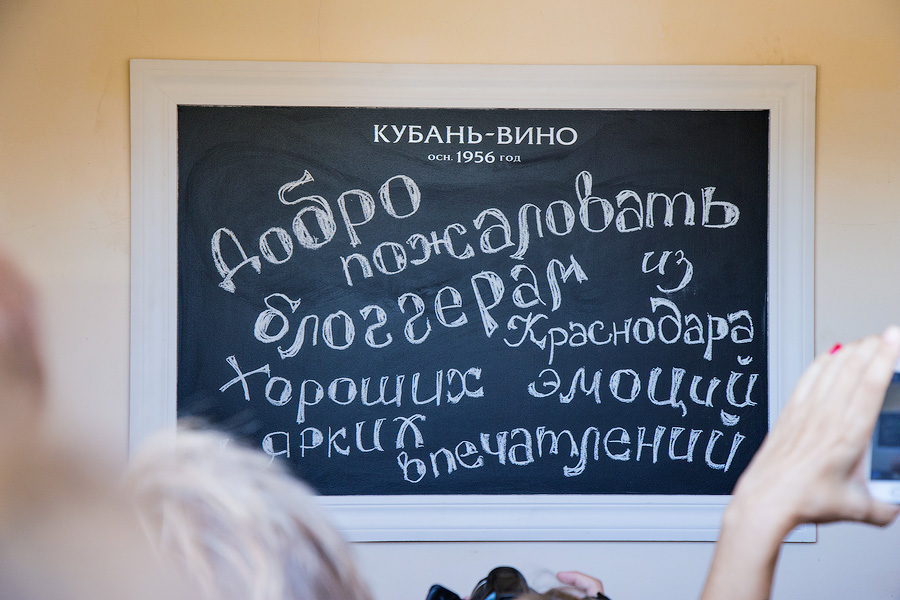 КУБАНЬ-ВИНО
осн. 1956 год
Добро
пожаловать
блоггерам из
Краснодара
Хороших эмоций
ярких впечатлений